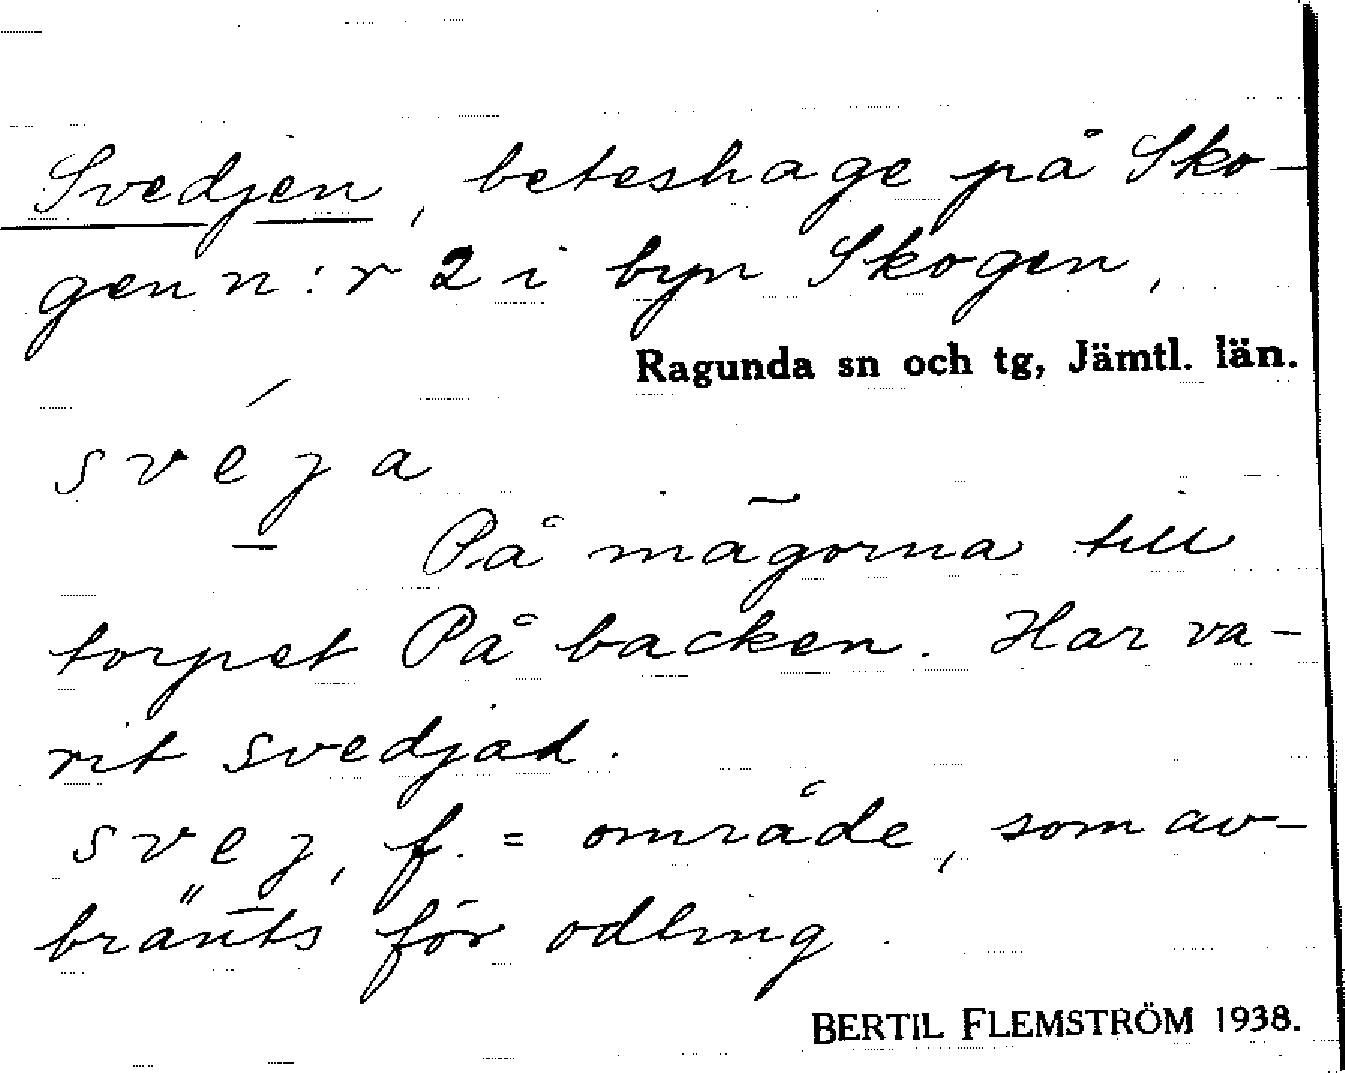 Svedjen, beteshage på Sko-
gen n:r 2 i byn Skogen,
Ragunda sn och tg, Jämtl. län.
svéja
På mägorna till
torpet På backen. Har va-
rit svedjad.
svej, f. = område, som av-
bränts för odling.
BERTIL FLEMSTRÖM 1938.